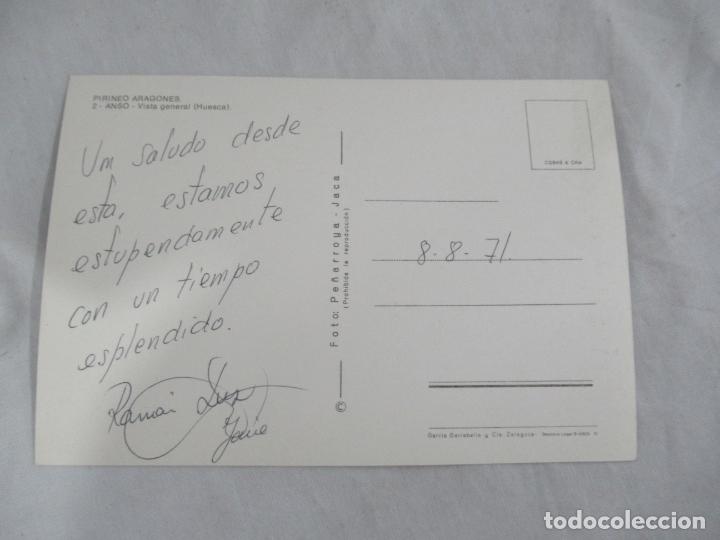 PIRINEO ARAGONES
2 - ANSO - Vista general (Huesca).
Um saludo desde
esta, estamos
estupendamente
con un tiempo
esplendido.
Ramón
Foto: Peñarroya - Jaca
(Prohibida la reproducción)
©
8-8-71.
García Garrabella y Cía. Zaragoza
todocoleccion
todocoleccion.net